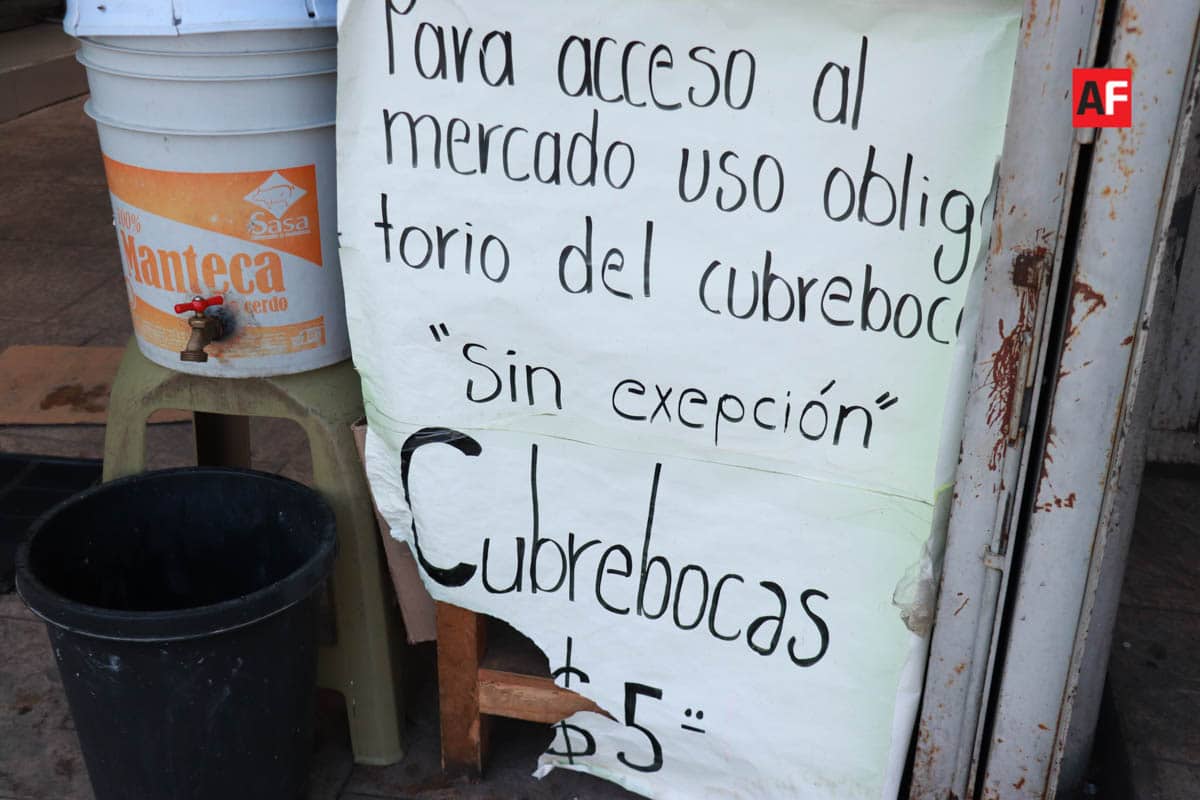 Para acceso al
mercado uso obliga
torio del cubreboc
"Sin exepción"
Cubrebocas
$5=
Sasa
100%
Manteca
cerdo
AF